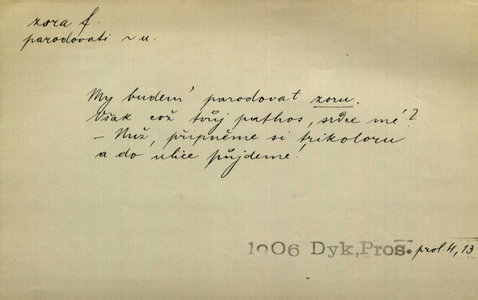 zora f.
parodovati ~ u.
My budem' parodovat zoru.
Však což tvůj pathos, srdce mé?
– Nuž, připněme si trikoloru
a do ulice půjdeme!
1906 Dyk, Pros. prol. 4, 13